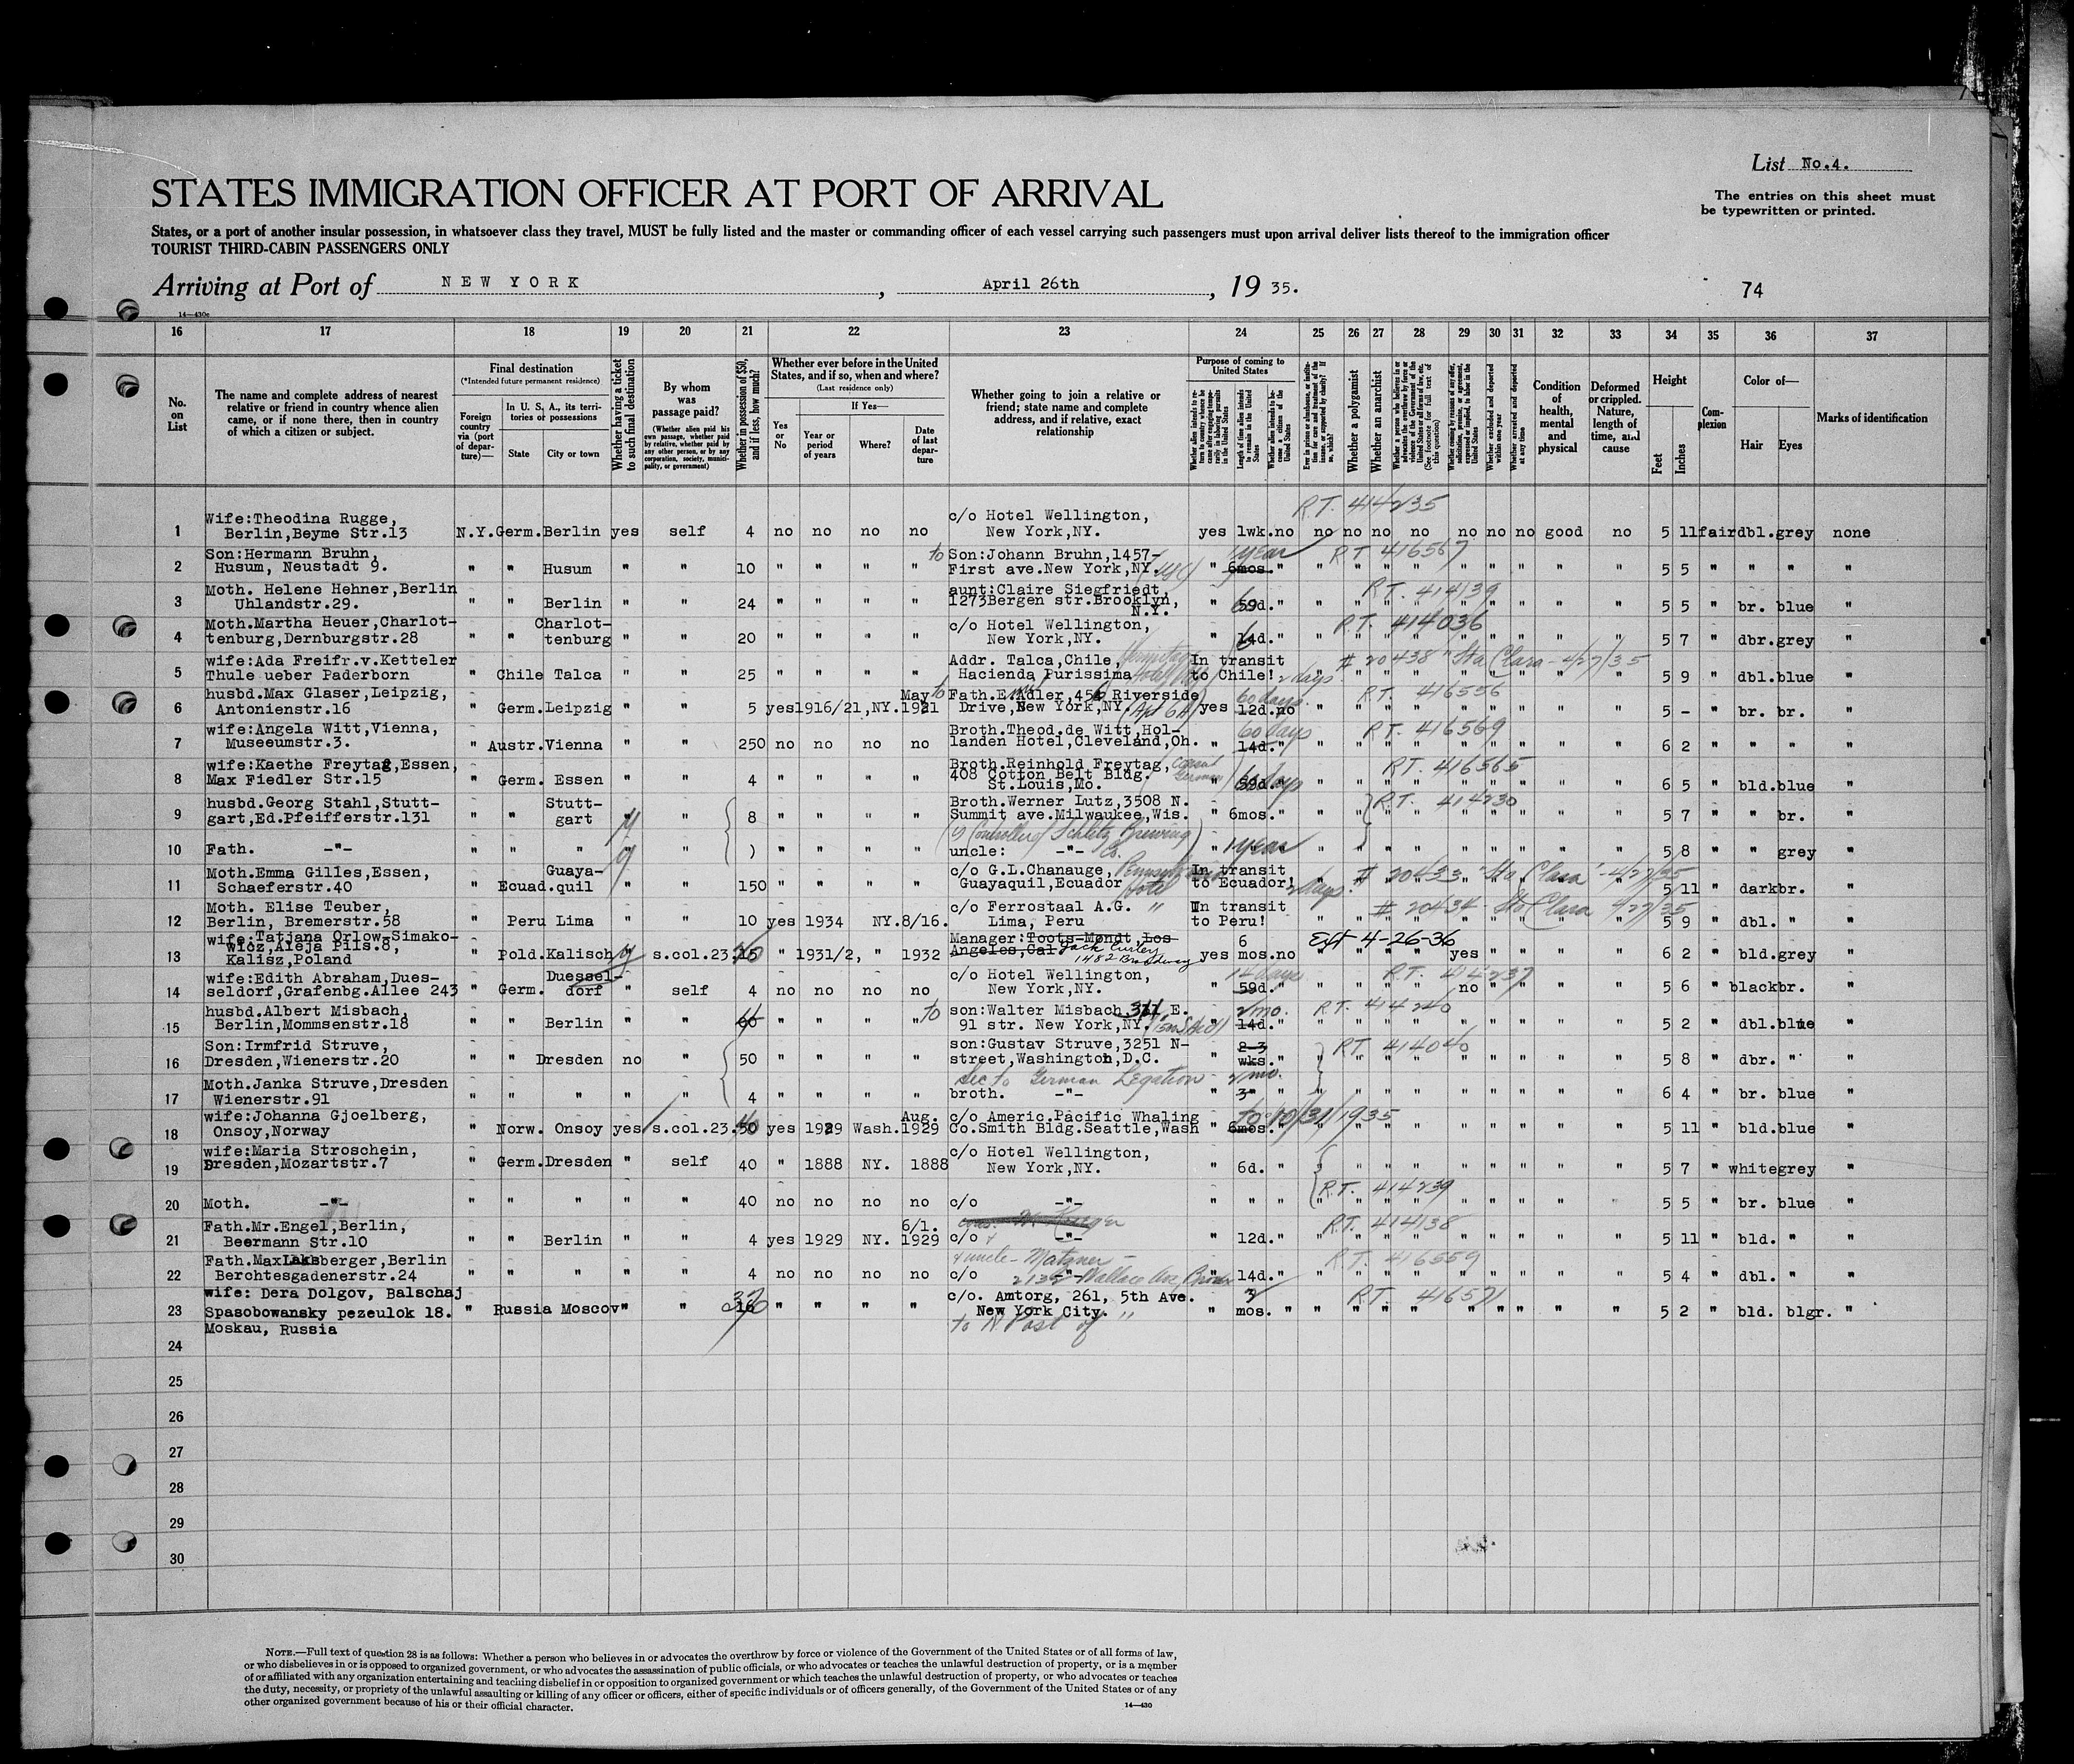 List No.4.
STATES IMMIGRATION OFFICER AT PORT OF ARRIVAL
The entries on this sheet must
be typewritten or printed.
States, or a port of another insular possession, in whatsoever class they travel, MUST be fully listed and the master or commanding officer of each vessel carrying such passengers must upon arrival deliver lists thereof to the immigration officer
TOURIST THIRD-CABIN PASSENGERS ONLY
Arriving at Port of NEW YORK, April 26th, 19 35.
74
14—430c
16 17 18 19 20 21 22 23 24 25 26 27 28 29 30 31 32 33 34 35 36 37
No. on List
The name and complete address of nearest relative or friend in country whence alien came, or if none there, then in country of which a citizen or subject.
Final destination
(*Intended future permanent residence)
Foreign country via (port of departure)—
In U. S. A., its territories or possessions
State
City or town
Whether having a ticket to such final destination
By whom was passage paid?
(Whether alien paid his own passage, whether paid by relative, whether paid by any other person, or by any corporation, society, municipality, or government)
Whether in possession of $50, and if less, how much?
Whether ever before in the United States, and if so, when and where?
(Last residence only)
Yes or No
If Yes—
Year or period of years
Where?
Date of last departure
Whether going to join a relative or friend; state name and complete address, and if relative, exact relationship
Purpose of coming to United States
Whether alien intends to return to country whence he came after engaging temporarily in laboring pursuits in the United States
Length of time alien intends to remain in the United States
Whether alien intends to become a citizen of the United States
Ever in prison or almshouse, or institution for care and treatment of the insane, or supported by charity? If so, which?
Whether a polygamist
Whether an anarchist
Whether a person who believes in or advocates the overthrow by force or violence of the Government of the United States or all forms of law, etc. (See footnote for full text of this question)
Whether coming by reason of any offer, solicitation, promise, or agreement, expressed or implied, to labor in the United States
Whether excluded and deported within one year
Whether arrested and deported at any time
Condition of health, mental and physical
Deformed or crippled. Nature, length of time, and cause
Height
Feet
Inches
Complexion
Color of—
Hair
Eyes
Marks of identification
R.T. 414235
1 Wife:Theodina Rugge, Berlin,Beyme Str.13 N.Y. Germ. Berlin yes self 4 no no no no c/o Hotel Wellington, New York,NY. yes 1wk. no no no no no no no no good no 5 11 fair dbl. grey none
year R.T. 416567
2 Son:Hermann Bruhn, Husum, Neustadt 9. " " Husum " " 10 " " " " to Son:Johann Bruhn,1457-First ave.New York,NY. " 6mos. " " " " " " " " " " 5 5 " " " "
R.T. 414139
3 Moth. Helene Hehner,Berlin Uhlandstr.29. " " Berlin " " 24 " " " " aunt:Claire Siegfriedt, 1273Bergen str.Brooklyn, N.Y. " 59d. " " " " " " " " " " 5 5 " br. blue "
R.T. 414036
4 Moth.Martha Heuer,Charlottenburg,Dernburgstr.28 " " Charlottenburg " " 20 " " " " c/o Hotel Wellington, New York,NY. " 14d. " " " " " " " " " " 5 7 " dbr. grey "
# 20438 "Sta Clara - 4/27/35
5 wife:Ada Freifr.v.Ketteler Thule ueber Paderborn " Chile Talca " " 25 " " " " Addr. Talca,Chile, Hacienda Purissima In transit to Chile! 2 days " " " " " " " " " 5 9 " dbl. blue "
60 days R.T. 416556
6 husbd.Max Glaser,Leipzig, Antonienstr.16 " Germ. Leipzig " " 5 yes 1916/21,NY. May 1921 to Fath.E.Adler,454 Riverside Drive,New York,NY. (Apt 6A) yes 12d. no " " " " " " " " " 5 - " br. br. "
60 days R.T. 416569
7 wife:Angela Witt,Vienna, Museeumstr.3. " Austr. Vienna " " 250 no no no no Broth.Theod.de Witt,Hollanden Hotel,Cleveland,Oh. " 14d. " " " " " " " " " " 6 2 " " " "
R.T. 416565
8 wife:Kaethe Freytag,Essen, Max Fiedler Str.15 " Germ. Essen " " 4 " " " " Broth.Reinhold Freytag, 408 Cotton Belt Bldg. St.Louis,Mo. " 59d. " " " " " " " " " " 6 5 " bld. blue "
R.T. 414230
9 husbd.Georg Stahl,Stuttgart,Ed.Pfeifferstr.131 " " Stuttgart " 8 " " " " Broth.Werner Lutz,3508 N. Summit ave.Milwaukee,Wis. " 6mos. " " " " " " " " " " 5 7 " " br. "
(is Controller of Schlitz Brewing Co.)
10 Fath. -"- " " " " ) " " " " uncle: -"- " 1 year " " " " " " " " " 5 8 " " grey "
# 20433 "Sta Clara" - 4/27/35
11 Moth.Emma Gilles,Essen, Schaeferstr.40 " Ecuad. Guayaquil " " 150 " " " " c/o G.L.Chanauge, Guayaquil,Ecuador Hotel In transit to Ecuador! 2 days " " " " " " " " " 5 11 " dark br. "
# 20434 - Sta Clara 4/27/35
12 Moth. Elise Teuber, Berlin, Bremerstr.58 " Peru Lima " " 10 yes 1934 NY. 8/16. c/o Ferrostaal A.G. Lima, Peru In transit to Peru! " " " " " " " " " 5 9 " dbl. " "
Ext 4-26-36
13 wife:Tatjana Orlow-Simakowicz,Aleja Pils.8, Kalisz,Poland " Pold. Kalisch y s.col.23. " 1931/2, " 1932 Manager:Toots-Mondt,Los Angeles,Cal. Jack Curley 1482 Broadway yes 6 mos. no " " " " yes " " " " 6 2 " bld. grey "
14 days R.T. 414237
14 wife:Edith Abraham,Duesseldorf,Grafenbg.Allee 243 " Germ. Duesseldorf " self 4 no no no no c/o Hotel Wellington, New York,NY. " 59d. " " " " " no " " " " 5 6 " black br. "
2 mo. R.T. 414240
15 husbd.Albert Misbach, Berlin,Mommsenstr.18 " " Berlin " " 60 " " " " to son:Walter Misbach 311 E. 91 str. New York,NY. " 14d. " " " " " " " " " " 5 2 " dbl. blue "
R.T. 414040
16 Son:Irmfrid Struve, Dresden,Wienerstr.20 " " Dresden no " 50 " " " " son:Gustav Struve,3251 N-street,Washington,D.C. " 2-3 wks. " " " " " " " " " " 5 8 " dbr. " "
Sec to German Legation 2 mo.
17 Moth.Janka Struve,Dresden Wienerstr.91 " " " " " 4 " " " " broth. -"- " 3" " " " " " " " " " 6 4 " br. blue "
to 10/31/1935
18 wife:Johanna Gjoelberg, Onsoy,Norway " Norw. Onsoy yes s.col.23. 50 yes 1929 Wash. Aug. 1929 c/o Americ.Pacific Whaling Co.Smith Bldg.Seattle,Wash " 6mos. " " " " " " " " " " 5 11 " bld. blue "
19 wife:Maria Stroschein, Dresden,Mozartstr.7 " Germ. Dresden " self 40 " 1888 NY. 1888 c/o Hotel Wellington, New York,NY. " 6d. " " " " " " " " " " 5 7 " white grey "
R.T. 414239
20 Moth. -"- " " " " " 40 no no no no c/o -"- " " " " " " " " " " " " 5 5 " br. blue "
R.T. 414138
21 Fath.Mr.Engel,Berlin, Beermann Str.10 " " Berlin " " 4 yes 1929 NY. 6/1. 1929 c/o -"- " 12d. " " " " " " " " " " 5 11 " bld. " "
uncle - Matzner - R.T. 416559
22 Fath.Max berger,Berlin Berchtesgadenerstr.24 " " " " " 4 no no no no c/o 2135 Wallace Ave, Bronx 14d. " " " " " " " " " " 5 4 " dbl. " "
R.T. 416571
23 wife: Dera Dolgov, Balschaj Spasobowansky pezeulok 18. Moskau, Russia " Russia Moscov " " " " " " c/o. Amtorg, 261, 5th Ave. New York City. " mos. " " " " " " " " " " 5 2 " bld. blgr. "
24
25
26
27
28
29
30
NOTE.—Full text of question 28 is as follows: Whether a person who believes in or advocates the overthrow by force or violence of the Government of the United States or of all forms of law,
or who disbelieves in or is opposed to organized government, or who advocates the assassination of public officials, or who advocates or teaches the unlawful destruction of property, or is a member
of or affiliated with any organization entertaining and teaching disbelief in or opposition to organized government or which teaches the unlawful destruction of property, or who advocates or teaches
the duty, necessity, or propriety of the unlawful assaulting or killing of any officer or officers, either of specific individuals or of officers generally, of the Government of the United States or of any
other organized government because of his or their official character.
14—430